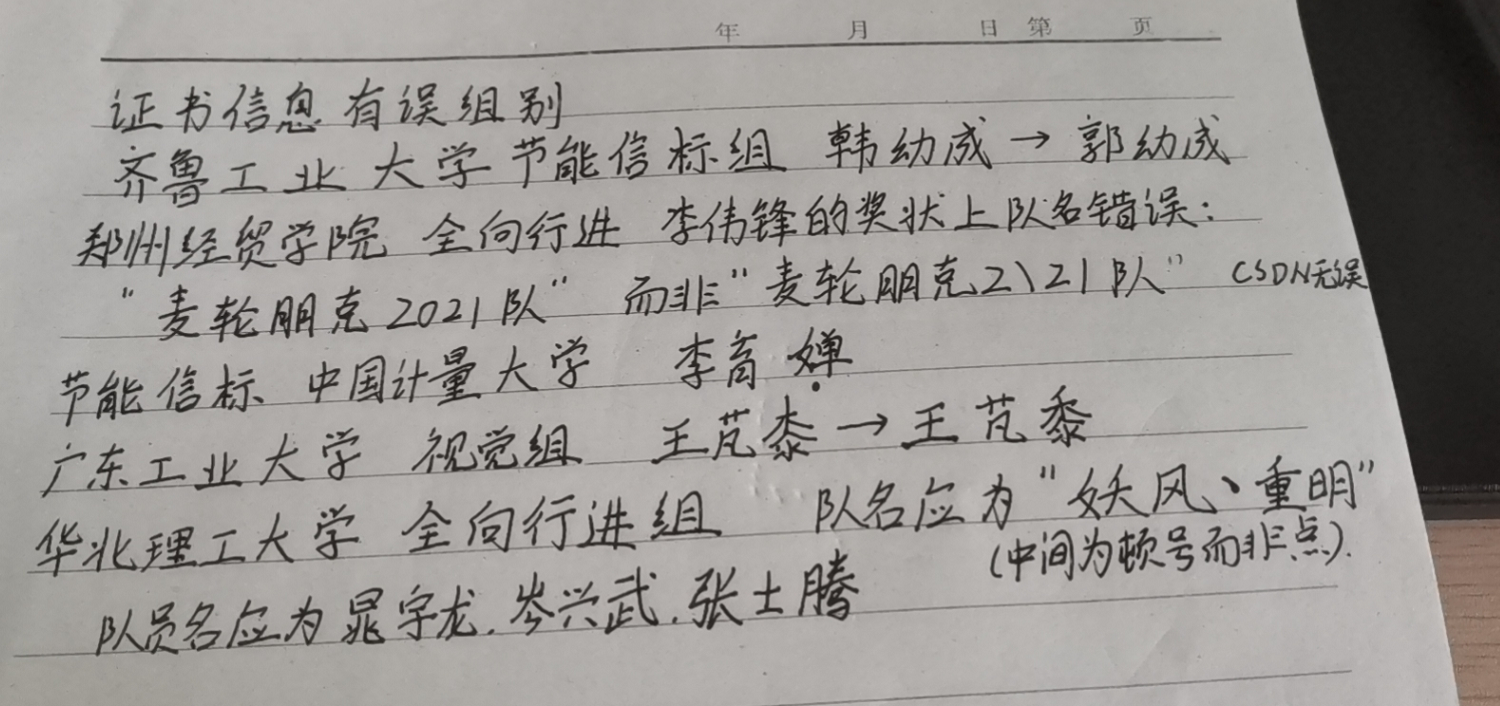 年 月 日 第 页
证书信息有误组别
齐鲁工业大学节能信标组 韩幼成→郭幼成
郑州经贸学院 全向行进 李伟锋的奖状上队名错误:
"麦轮朋克2021队" 而非"麦轮朋克2\21队" CSDN无误
节能信标 中国计量大学 李育婵
广东工业大学 视觉组 王芃桼→王芃黍
华北理工大学 全向行进组 队名应为"妖风、重明"
(中间为顿号而非点).
队员名应为晁宇龙.岑兴武.张士腾